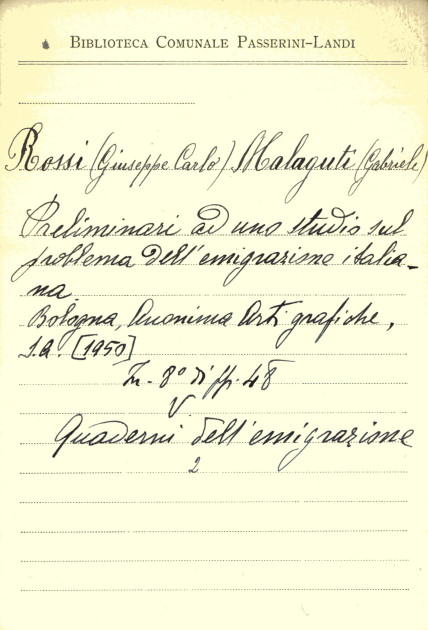 BIBLIOTECA COMUNALE PASSERINI-LANDI
Rossi (Giuseppe Carlo) Malaguti (Gabriele)
Preliminari ad uno studio sul
problema dell'emigrazione italia-
na
Bologna, Anonima Arti grafiche,
S.a. [1950]
In- 8° di pp. 48
V
Quaderni dell'emigrazione
2